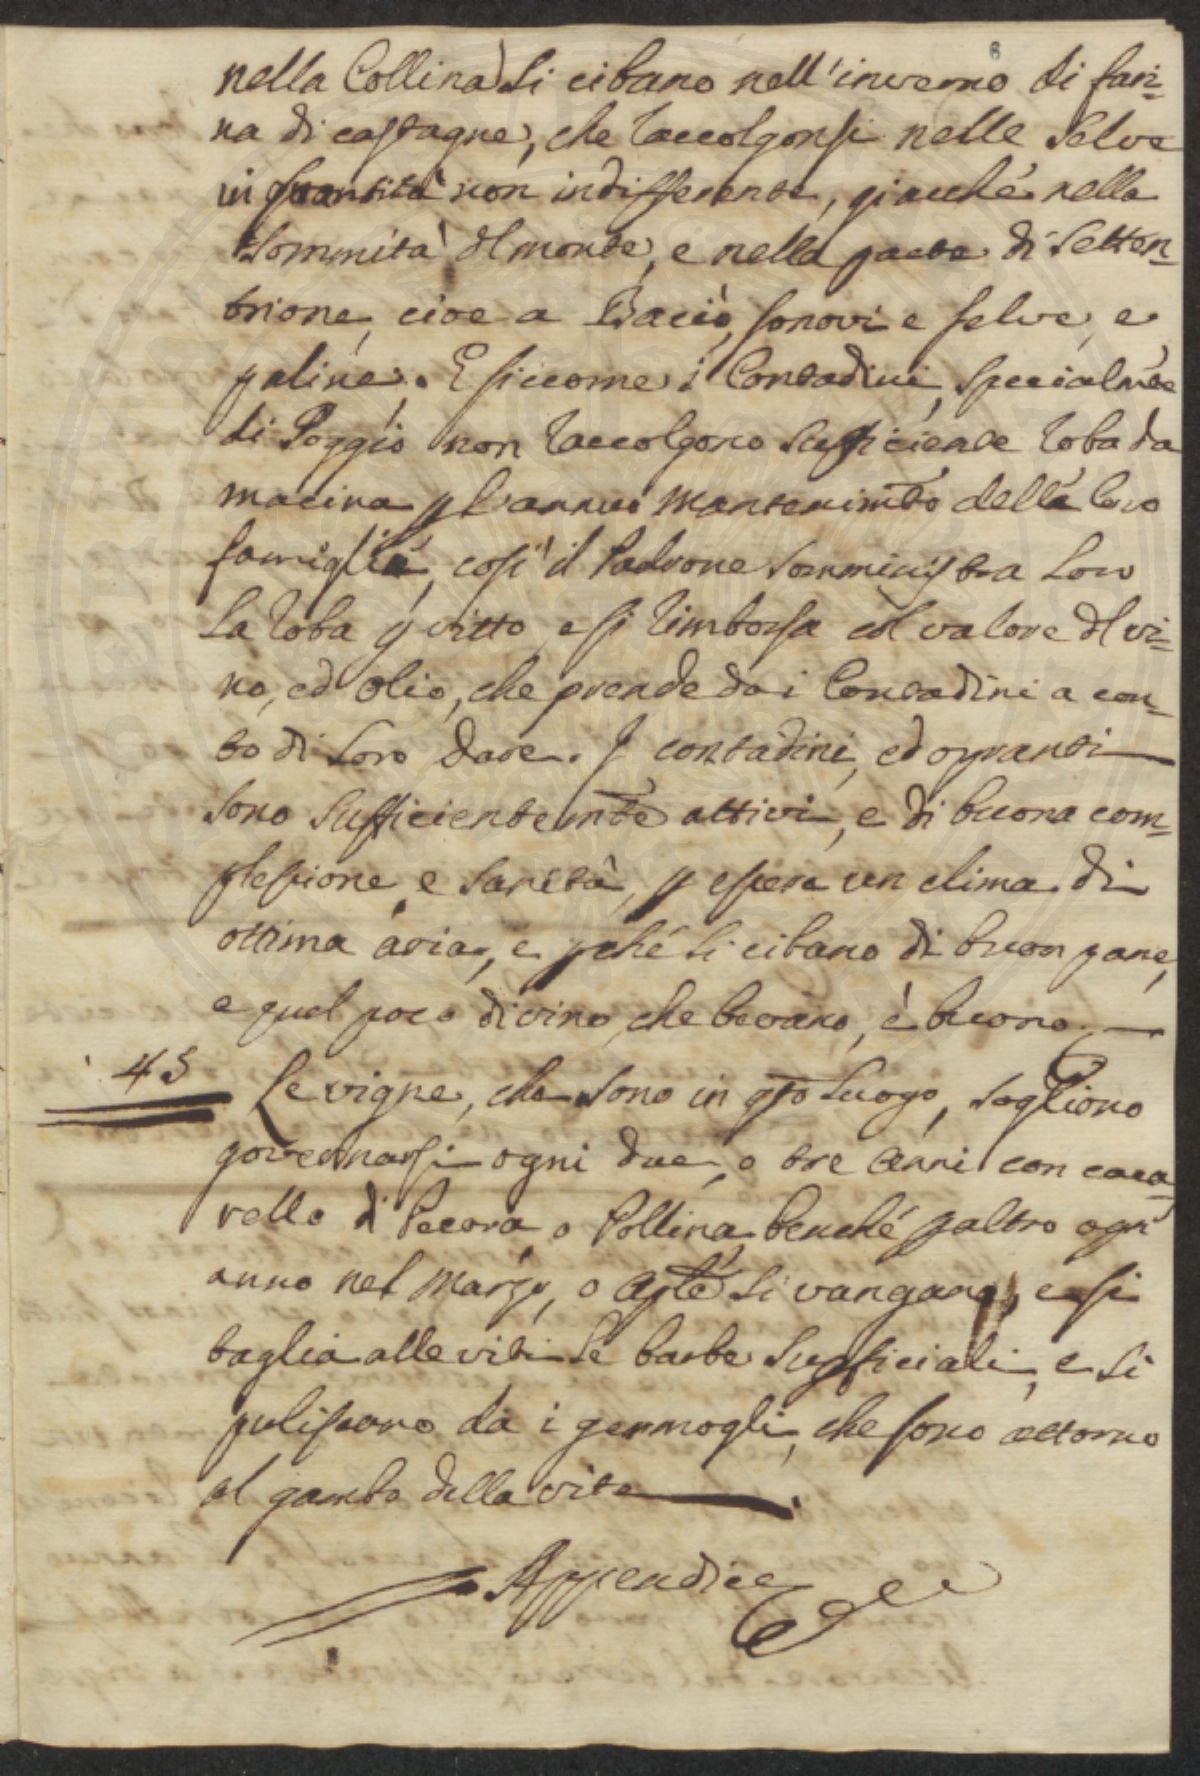 8
nella Collina si cibano nell'inverno di fari=
na di castagne, che raccolgonsi nelle Selve
in quantità non indifferente, giacché nella
Sommità dl monte, e nella parte di Setten=
trione, cioe a Bacìo, sonovi e selve, e
paline. E siccome i Contadini, specialmte
di Poggio non raccolgono sufficiente roba da
macina p l'annuo mantenimto delle loro
famiglie, così il Padrone somministra loro
la roba p vitto, e si rimborsa col valore dl vi=
no, ed olio, che prende da i Contadini a con=
to di loro dare. I contadini, ed opranti
sono sufficientemte attivi, e di buona com=
plessione, e sanità, p essere un clima di
ottima aria, e pché si cibano di buon pane,
e quel poco di vino, che bevano, è buono.
45 Le vigne, che sono in qsto luogo, sogliono
governarsi ogni due, o tre anni con caca=
rello di Pecora, o Pollina, benché p altro ogn'
anno nel Marzo, o Aple si vangano, e si
taglia alle viti le barbe supficiali, e si
puliscano da i germogli, che sono attorno
al gambo della vite
Appendice